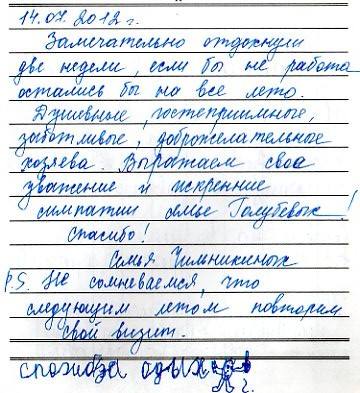 14.07.2012г.
Замечательно отдохнули
две недели, если бы не работа
остались бы на все лето.
Душевные, гостеприимные,
заботливые, доброжелательные
хозяева. Выражаем свое
уважение и искренние
симпатии семье Голубевых!
Спасибо!
Семья Чильникиных
P.S. Не сомневаемся, что
следующим летом повторим
свой визит.
спасибоза одых